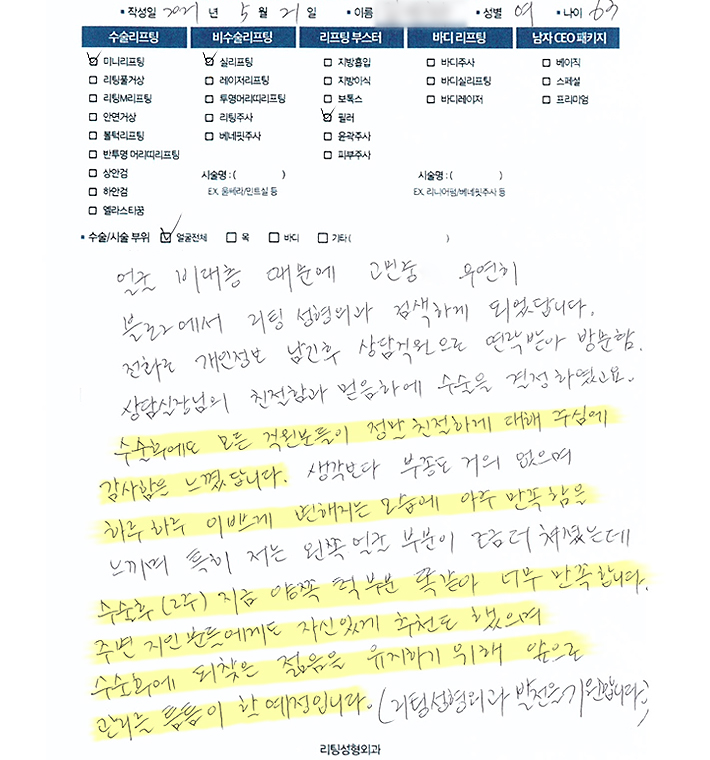 • 작성일 2021 년 5 월 21 일 • 이름 • 성별 여 • 나이 63
수술리프팅 비수술리프팅 리프팅 부스터 바디 리프팅 남자 CEO 패키지
미니리프팅 실리프팅 지방흡입 바디주사 베이직
리팅풀거상 레이저리프팅 지방이식 바디실리프팅 스페셜
리팅M리프팅 투명머리띠리프팅 보톡스 바디레이저 프리미엄
안면거상 리팅주사 필러
볼턱리프팅 베네핏주사 윤곽주사
반투명 머리띠리프팅 피부주사
상안검 시술명 : ( ) 시술명 : ( )
하안검 EX. 울쎄라/민트실 등 EX. 리니어펌/베네핏주사 등
엘라스티꿈
• 수술/시술 부위 얼굴전체 목 바디 기타 ( )
얼굴 비대칭 때문에 고민중 우연히
블로그에서 리팅성형외과 검색하게 되었답니다.
전화로 개인정보 남긴후 상담직원으로 연락받아 방문함.
상담실장님의 친절함과 믿음하에 수술을 결정하였고요.
수술후에도 모든 직원분들이 정말 친절하게 대해 주심에
감사함을 느꼈답니다. 생각보다 부종도 거의 없으며
하루 하루 이쁘게 변해지는 모습에 아주 만족함을
느끼며 특히 저는 왼쪽 얼굴 부분이 조금더 쳐졌는데
수술후 (2주) 지금 양쪽 턱 부분 똑같아 너무 만족합니다.
주변 지인분들에게도 자신있게 추천도 했으며
수술후에 되찾은 젊음을 유지하기 위해 앞으로
관리를 틈틈이 할 예정입니다. (리팅성형외과 발전을 기원합니다)
리팅성형외과